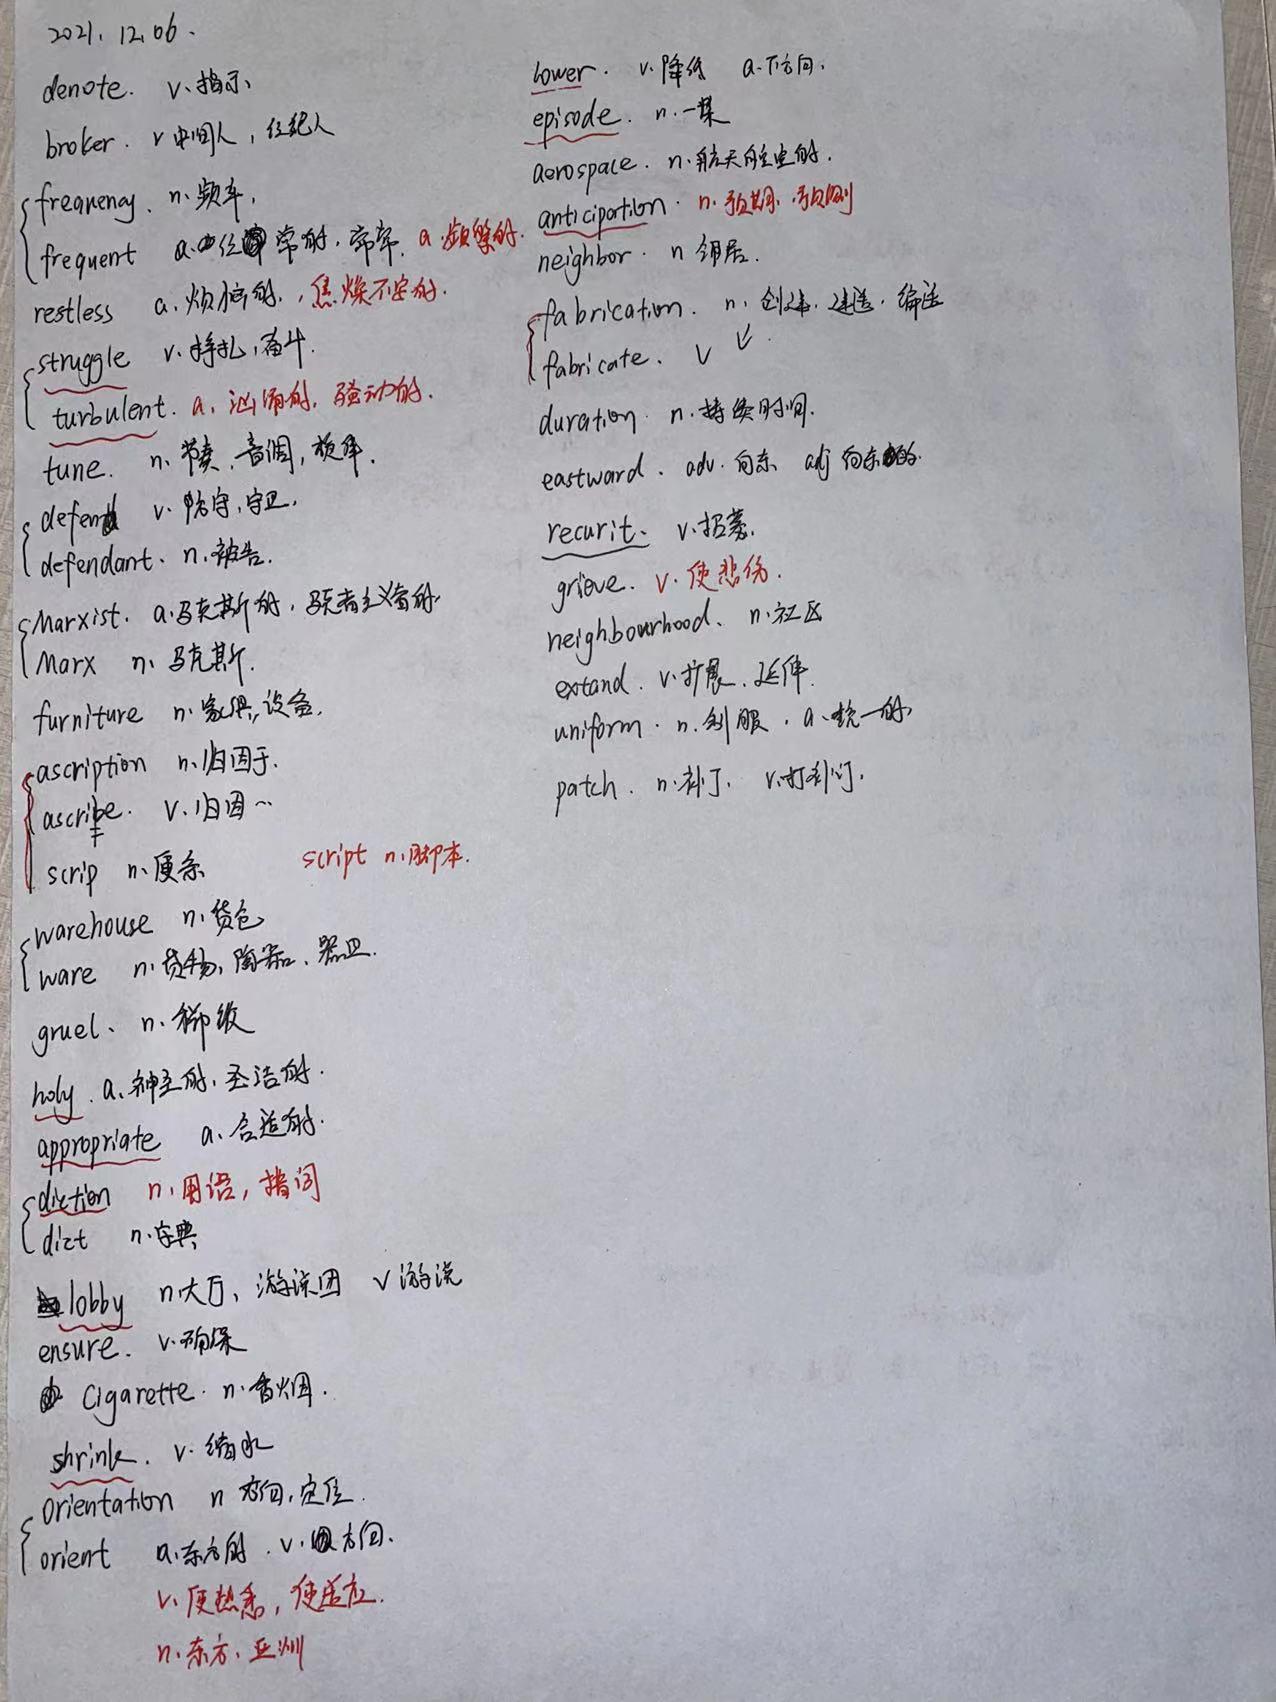 2021.12.06.
denote. v.指示
broker. v 中间人，经纪人
frequency. n.频率.
frequent a. 常的，常常. a.频繁的.
restless a.烦恼的，焦燥不安的.
struggle v.挣扎，奋斗.
turbulent. a.汹涌的，骚动的.
tune. n.节奏，音调，旋律.
defend v.防守，守卫.
defendant. n.被告.
Marxist. a.马克斯的，马克思主义者的.
Marx n.马克斯.
furniture n.家俱，设备.
ascription n.归因于.
ascribe. v.归因…
scrip n.便条 script n.脚本.
warehouse n.货仓
ware n.货物，陶器、器皿.
gruel. n.稀饭
holy. a.神圣的，圣洁的.
appropriate a.合适的.
diction n.用语，措词
dict n.字典
lobby n.大厅，游说团 v游说
ensure. v.确保
cigarette. n.香烟.
shrink. v.缩水
orientation n 方向，定位.
orient a.东方的. v.方向.
v.使熟悉，使适应.
n.东方、亚洲
lower. v.降低 a.下方向.
episode. n.一集
aerospace. n.航天航空的.
anticipation. n.预期，预测
neighbor. n 邻居.
fabrication. n.创建，建造，编造
fabricate. v ↙
duration. n.持续时间.
eastward. adv.向东 adj 向东的.
recurit. v.招募.
grieve. v.使悲伤.
neighbourhood. n.社区
extand. v.扩展、延伸.
uniform. n.制服. a.统一的
patch. n.补丁. v.打补丁.